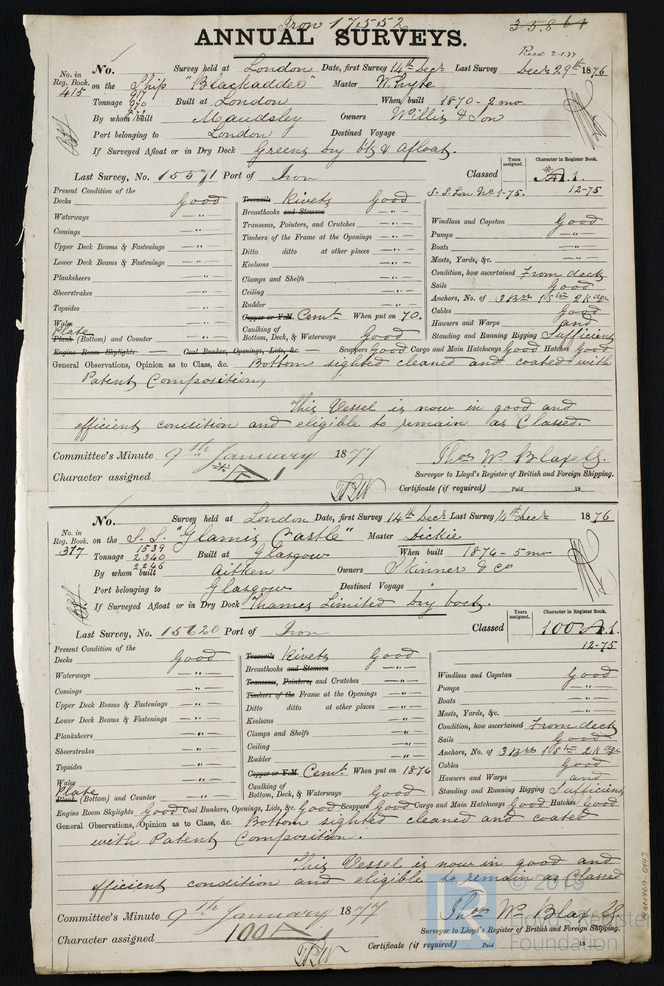 Iron 17552
ANNUAL SURVEYS.
35.861
Recd 2.1.77
No. Survey held at London Date, first Survey 14th Decr Last Survey Decr 29th 1876
No. in Reg. Book. 415 on the Ship "Blackadder" Master W. Whyte
Tonnage 917 970 Built at London When built 1870 - 2 mo
By whom built Maudsley Owners Willis & Son
Port belonging to London Destined Voyage
If Surveyed Afloat or in Dry Dock Greens Dry Dk & Afloat.
Years assigned. Character in Register Book.
Last Survey, No. 15571 Port of Iron Classed A1.
S.S. Lon No 1-75. 12-75
Present Condition of the
Decks Good Treenails Rivets Good
Waterways -"- Breasthooks and Stemson -"- Windlass and Capstan Good
Comings -"- Transoms, Pointers, and Crutches -"- Pumps -"-
Upper Deck Beams & Fastenings -"- Timbers of the Frame at the Openings -"- Boats -"-
Lower Deck Beams & Fastenings -"- Ditto ditto at other places -"- Masts, Yards, &c. -"-
Planksheers -"- Keelsons -"- Condition, how ascertained From deck
Sheerstrakes -"- Clamps and Shelfs -"- Sails Good
Topsides -"- Ceiling -"- Anchors, No. of 3 Brs 1 St 2 Kdge
Wales Rudder -"- Cables Good
Plate Copper or Y.M. Cemt. When put on 70. Hawsers and Warps and
Plank (Bottom) and Counter -"- Caulking of Bottom, Deck, & Waterways Good Standing and Running Rigging Sufficient
Engine Room Skylights — Coal Bunker, Openings, Lids, &c. — Scuppers Good Cargo and Main Hatchways Good Hatches Good
General Observations, Opinion as to Class, &c. Bottom sighted cleaned and coated with
Patent Composition,
This Vessel is now in good and
efficient condition and eligible to remain as Classed.
Committee's Minute 9th January 1877 Thos W. Blaxell.
Character assigned A 1 Surveyor to Lloyd's Register of British and Foreign Shipping.
Certificate (if required) Paid 18
No. Survey held at London Date, first Survey 14th Decr Last Survey 14th Decr 1876
No. in Reg. Book. 317 on the S.S. "Glamis Castle" Master Dickie
Tonnage 1539 2340 2246 Built at Glasgow When built 1874 - 5 mo
By whom built Aitken Owners Skinner & Co
Port belonging to Glasgow Destined Voyage
If Surveyed Afloat or in Dry Dock Thames Limited Dry Dock.
Years assigned. Character in Register Book.
Last Survey, No. 15620 Port of Iron Classed 100 A.1.
12-75
Present Condition of the
Decks Good Treenails Rivets Good
Waterways -"- Breasthooks and Stemson -"- Windlass and Capstan Good
Comings -"- Transoms, Pointers, and Crutches -"- Pumps -"-
Upper Deck Beams & Fastenings -"- Timbers of the Frame at the Openings -"- Boats -"-
Lower Deck Beams & Fastenings -"- Ditto ditto at other places -"- Masts, Yards, &c. -"-
Planksheers -"- Keelsons -"- Condition, how ascertained From deck
Sheerstrakes -"- Clamps and Shelfs -"- Sails Good
Topsides -"- Ceiling -"- Anchors, No. of 3 Brs 1 St 2 Kdge
Wales Rudder -"- Cables Good
Plate Copper or Y.M. Cemt. When put on 1874 Hawsers and Warps and
Plank (Bottom) and Counter -"- Caulking of Bottom, Deck, & Waterways Good Standing and Running Rigging Sufficient
Engine Room Skylights Good Coal Bunkers, Openings, Lids, &c. Good Scuppers Good Cargo and Main Hatchways Good Hatches Good
General Observations, Opinion as to Class, &c. Bottom sighted cleaned and coated
with Patent Composition.
This Vessel is now in good and
efficient condition and eligible to remain as Classed
Committee's Minute 9th January 1877 Thos W. Blaxell
Character assigned 100 A 1 Surveyor to Lloyd's Register of British and Foreign Shipping.
Certificate (if required) Paid 18
© 2019
Lloyd's Register
Foundation